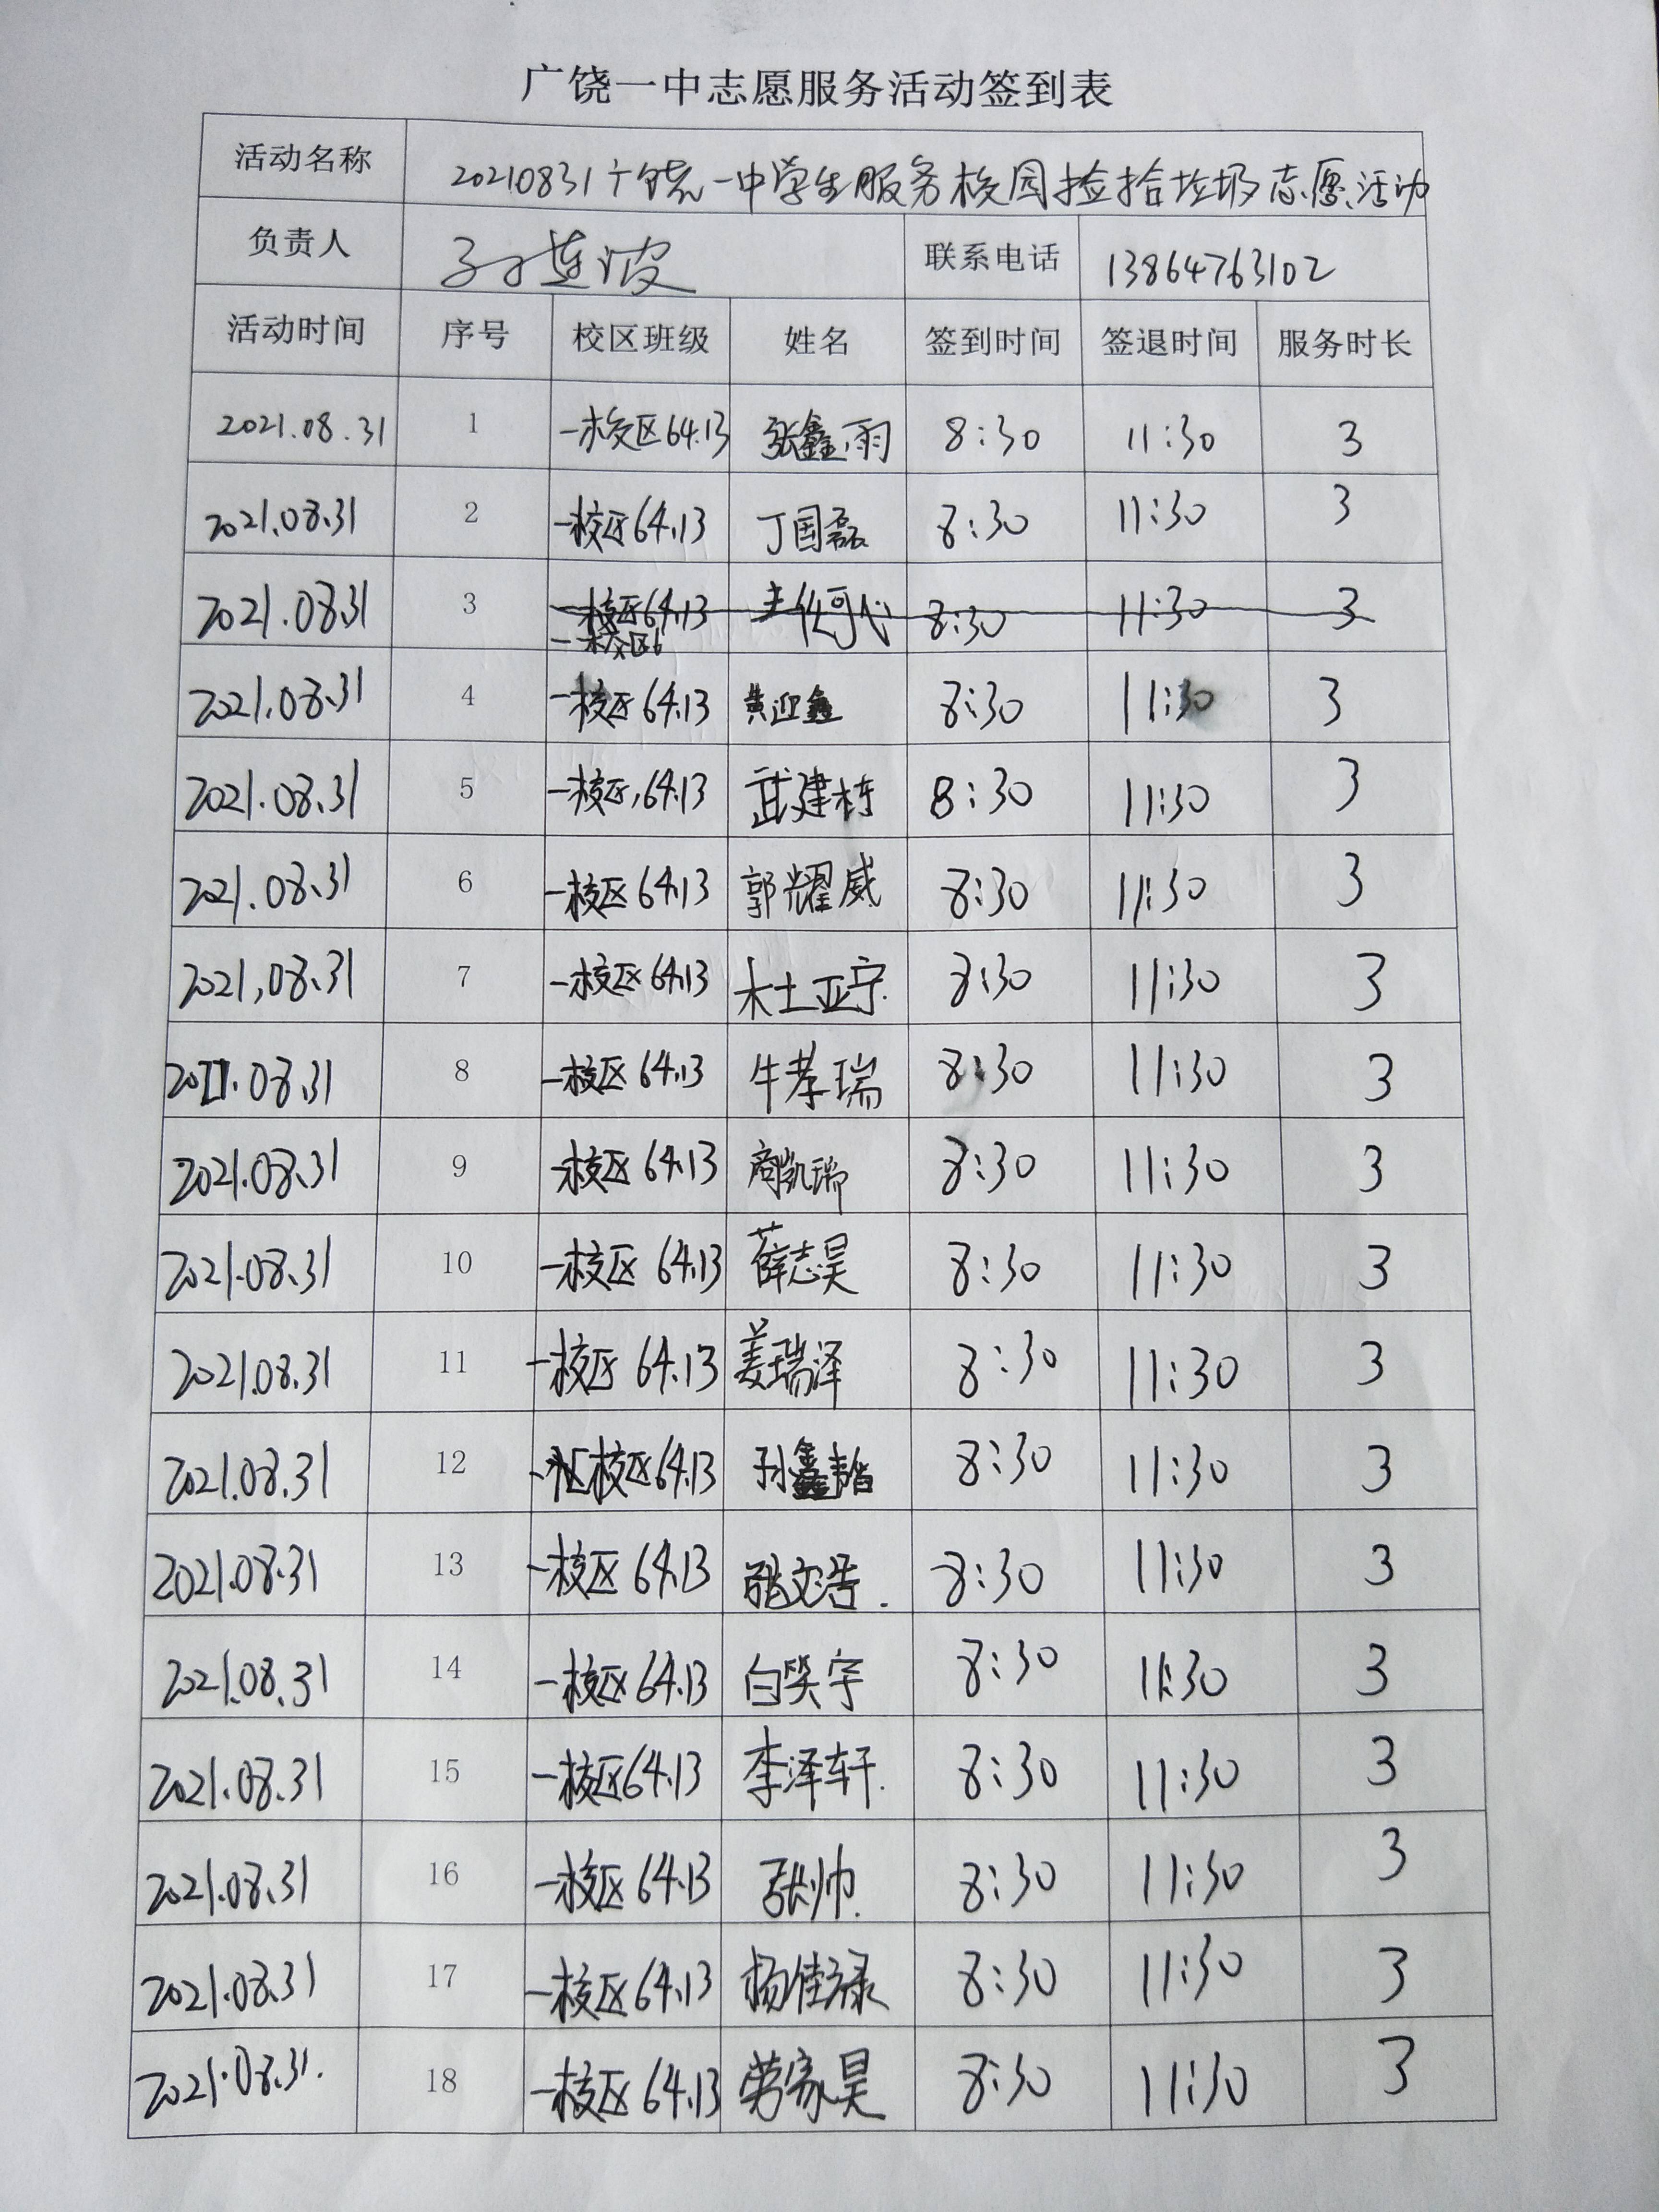 广饶一中志愿服务活动签到表
活动名称 20210831广饶一中学生服务校园捡拾垃圾志愿活动
负责人 孙连波 联系电话 13864763102
活动时间 序号 校区班级 姓名 签到时间 签退时间 服务时长
2021.08.31 1 一校区64.13 张鑫雨 8:30 11:30 3
2021.08.31 2 一校区64.13 丁国磊 8:30 11:30 3
2021.08.31 3 一校区64.13 8:30 11:30 3
一校区6
2021.08.31 4 一校区64.13 黄迎鑫 8:30 11:30 3
2021.08.31 5 一校区,64.13 武建栋 8:30 11:30 3
2021.08.31 6 一校区64.13 郭耀威 8:30 11:30 3
2021,08.31 7 一校区64.13 杜亚宁. 8:30 11:30 3
2021.08.31 8 一校区64.13 牛孝瑞 8:30 11:30 3
2021.08.31 9 一校区64.13 商凯瑞 8:30 11:30 3
2021.08.31 10 一校区64.13 薛志昊 8:30 11:30 3
2021.08.31 11 一校区64.13 姜瑞泽 8:30 11:30 3
2021.08.31 12 一校区64.13 孙鑫 8:30 11:30 3
2021.08.31 13 一校区64.13 张文浩. 8:30 11:30 3
2021.08.31 14 一校区64.13 白笑宇 8:30 11:30 3
2021.08.31 15 一校区64.13 李泽轩. 8:30 11:30 3
2021.08.31 16 一校区64.13 张帅. 8:30 11:30 3
2021.08.31 17 一校区64.13 杨佳禄 8:30 11:30 3
2021.08.31. 18 一校区64.13 劳家昊 8:30 11:30 3